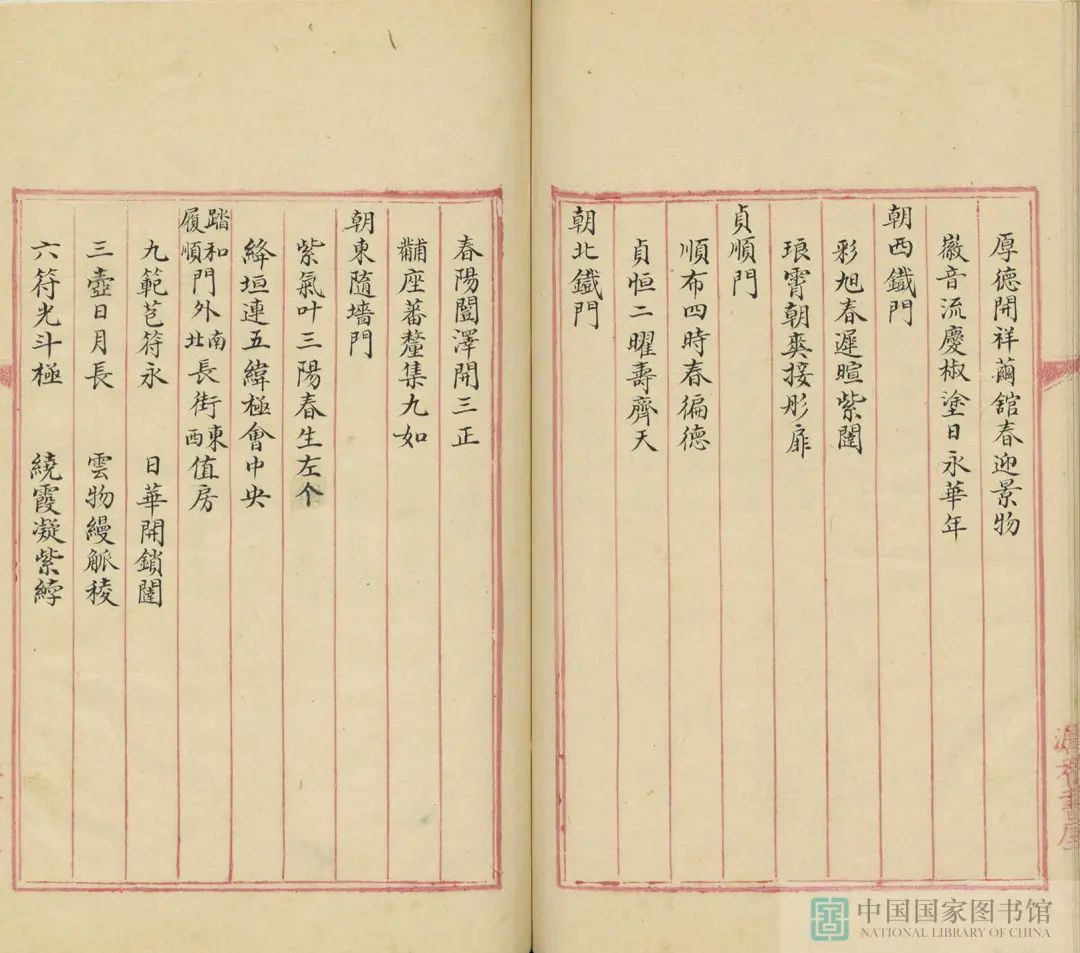 厚德開祥繭舘春迎景物
徽音流慶椒塗日永華年
朝西鐵門
彩旭春遲暄紫闥
琅霄朝爽接彤扉
貞順門
順布四時春徧德
貞恒二曜壽齊天
朝北鐵門
春陽闓澤開三正
黼座蕃釐集九如
朝東隨墻門
紫氣叶三陽春生左个
絳垣連五緯極會中央
踏和履順門外南北長街東西值房
九範苞符永 日華開鎖闥
三壺日月長 雲物縵觚稜
六符光斗極 繞霞凝紫
中国国家图书馆
NATIONAL LIBRARY OF CHINA